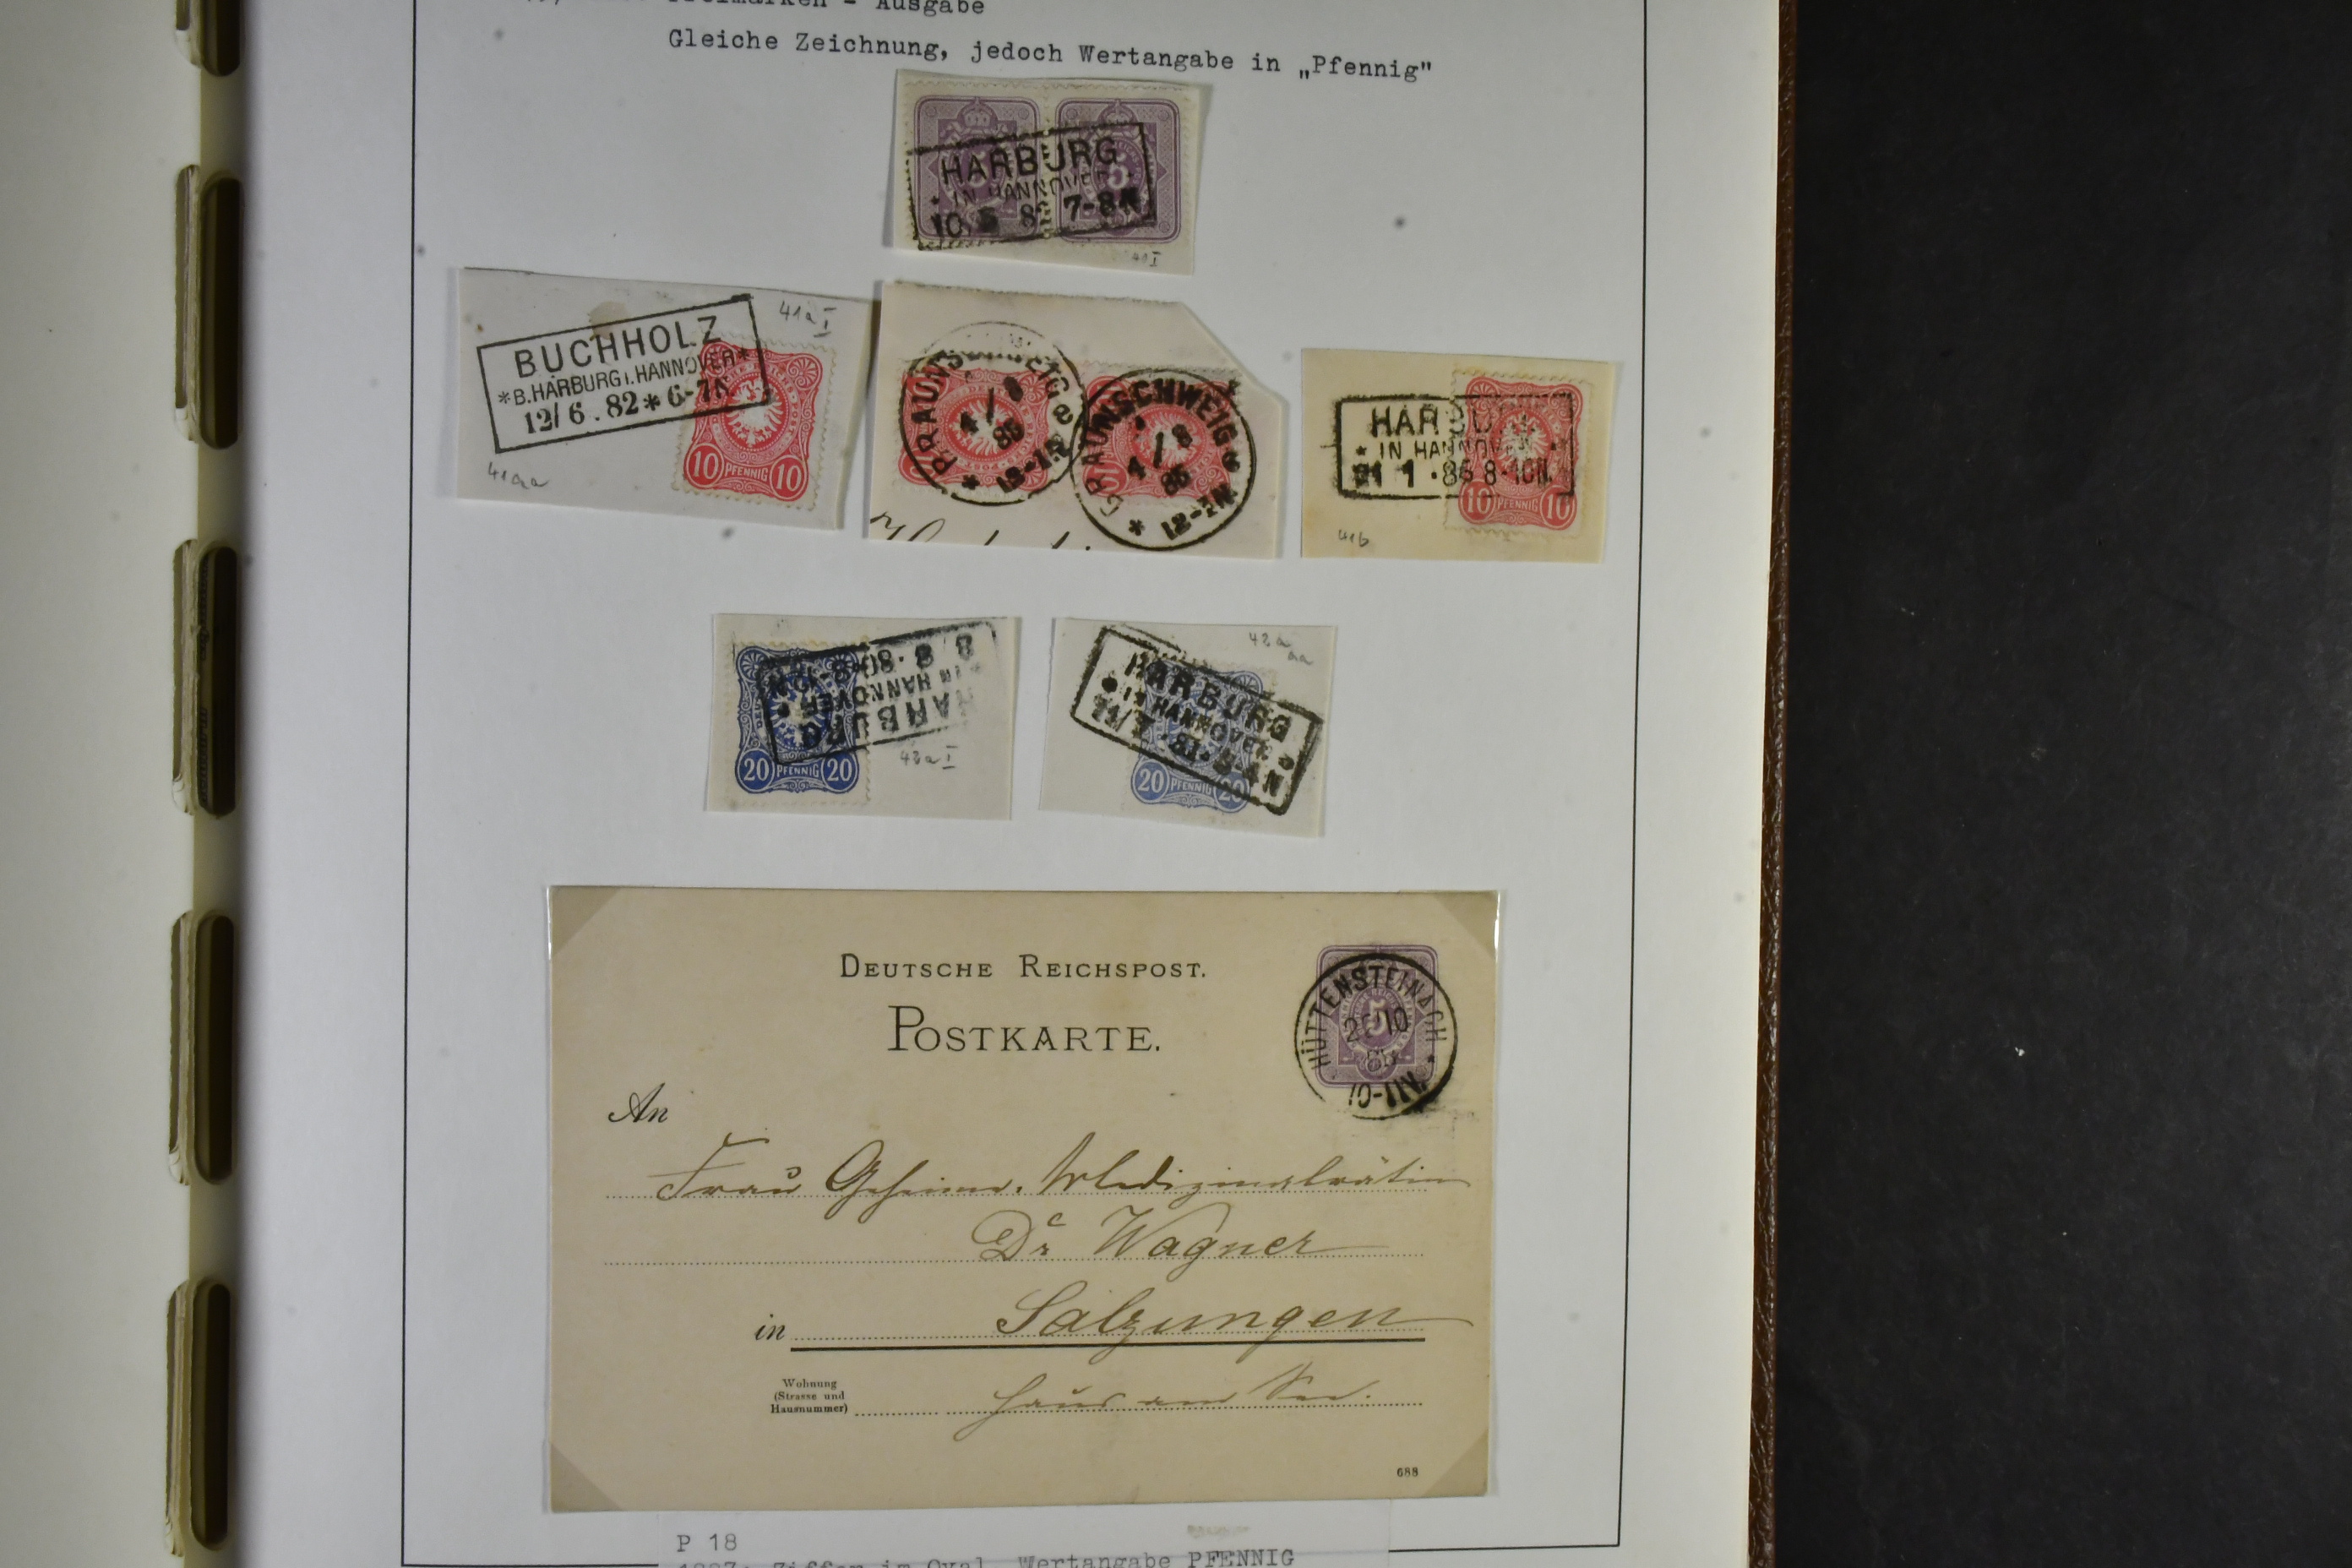 Ausgabe
Gleiche Zeichnung, jedoch Wertangabe in „Pfennig"
5 5
HARBURG
* IN HANNOVER
82 7-8N
41aI
BUCHHOLZ
*B.HARBURG I.HANNOVER*
12/6.82*6-7N
10 PFENNIG 10
41aa
BRAUNSCHWEIG
4/8
86
BRAUNSCHWEIG
4/8
86
12-1N
HARBURG
* IN HANNOVER *
1.86 8-10N.
10 PFENNIG 10
41b
HARBURG
IN HANNOVER
8 8.80
20 PFENNIG 20
42aI
42a
aa
HARBURG
IN HANNOVER
81.
20 PFENNIG 20
DEUTSCHE REICHSPOST.
POSTKARTE.
HÜTTENSTEINACH
10
10-11N.
5
An
Frau Geheim. Medizinalrätin
Dr Wagner
in Salzungen
Wohnung
(Strasse und
Hausnummer)
Haus am See.
688
P 18
Ziffer im Oval, Wertangabe PFENNIG